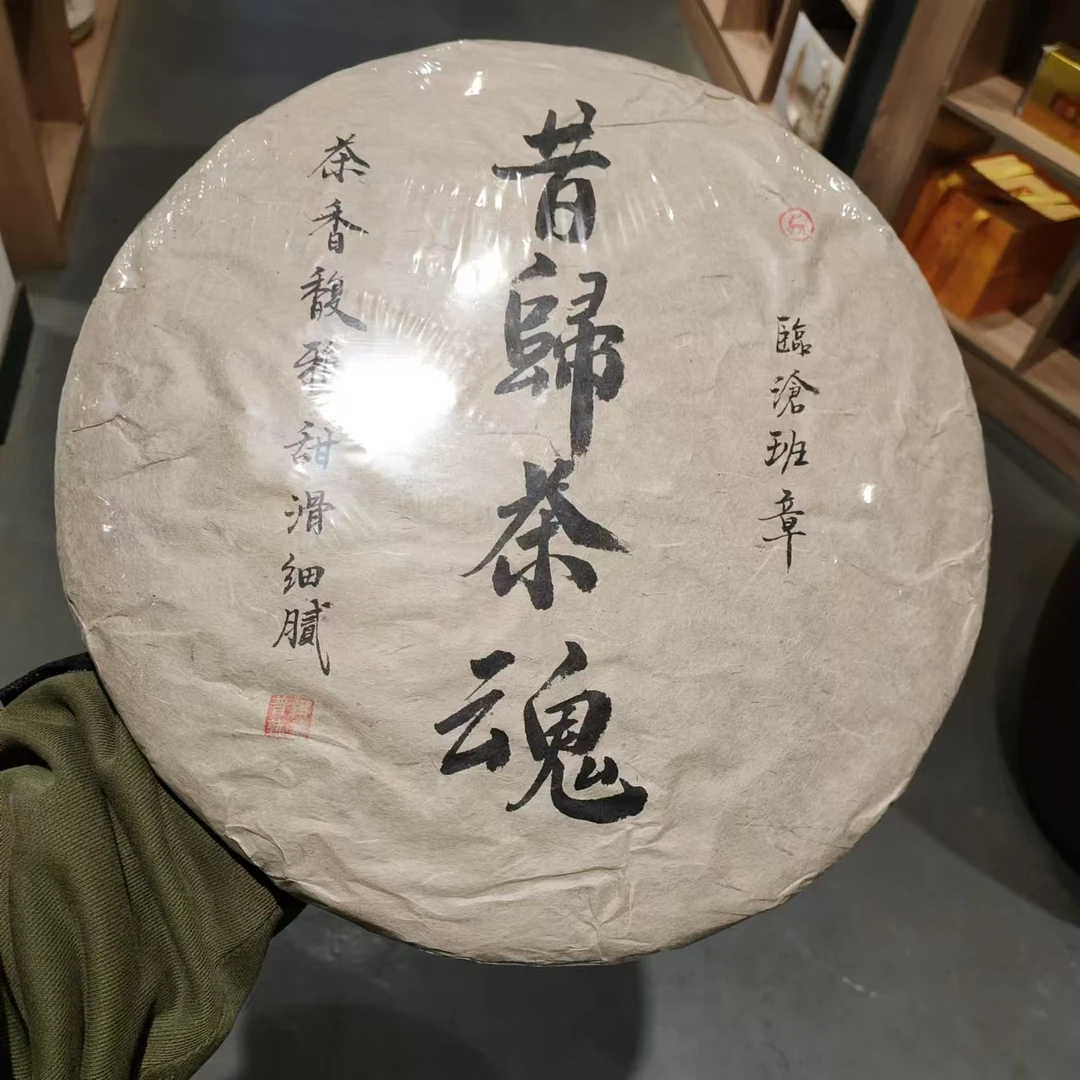 臨滄班章
昔歸茶魂
茶香馥甜滑细膩